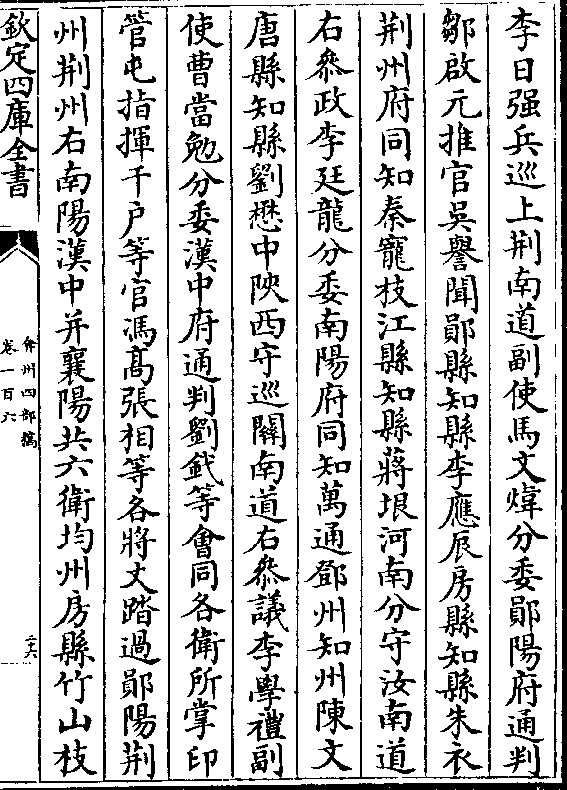 李日强兵巡上荆南道副使馬文煒分委鄖陽府通判
鄒啟元推官吳譽聞鄖縣知縣李應辰房縣知縣朱衣
荆州府同知秦寵枝江縣知縣蔣垠河南分守汝南道
右叅政李廷龍分委南陽府同知萬通鄧州知州陳文
唐縣知縣劉懋中陜西守巡關南道右叅議李學禮副
使曹當勉分委漢中府通判劉鉞等會同各衛所掌印
管屯指揮千户等官馮髙張相等各將丈踏過鄖陽荆
州荆州右南陽漢中并襄陽共六衛均州房縣竹山枝
欽定四庫全書
弇州四部稿
卷一百六
二六